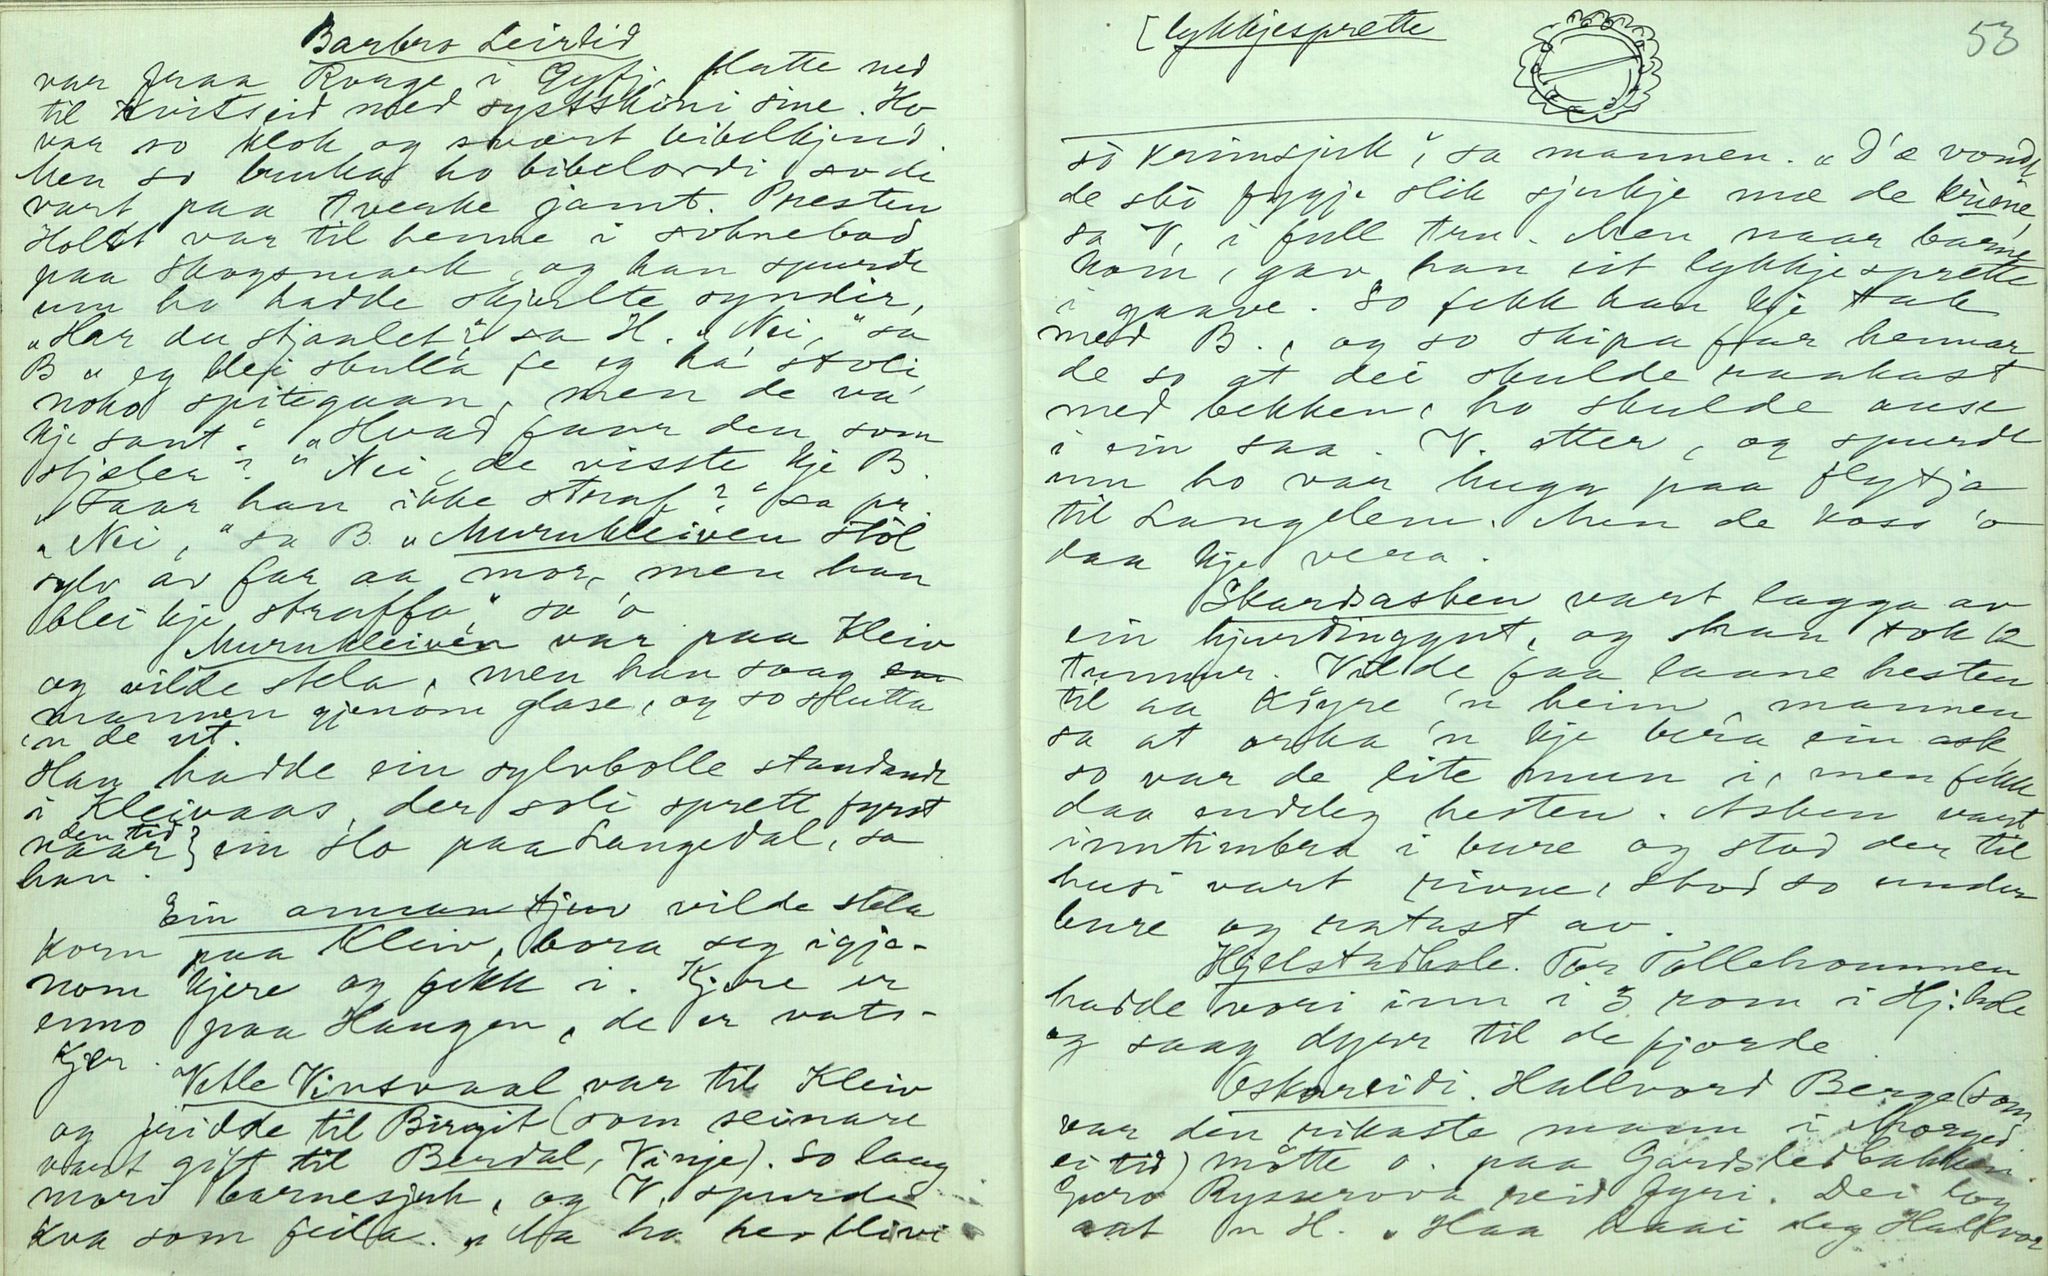 Barbro Leirlid
var fraa Rorge i Gyfj. flutte ned
til Kvitseid med systskini sine. Ho
var so klok og svært bibelkjend.
Men so bruka ho bibelordi so de
vart paa tverke jamt. Presten
Holst var til henne i soknebod
paa Skogsmark, og han spurde
um ho hadde skjulte syndir,
"Har du stjaalet?" sa H. "Nei," sa
B "eg blei skulla fe eg ha stoli
noko spitegaan, men de va
kje sant." "Hvad faar den som
stjæler?" Nei, de visste kje B.
"Faar han ikke straf?" sa pr.
"Nei," sa B. "Murukleiven stol
sylv av far aa mor, men han
blei kje straffa," sa 'o
Murukleiven var paa Kleiv
og vilde stela, men han saag
mannen gjenom glase, og so slutta
'n de ut.
Han hadde ein sylvbolle standande
i Kleivaas, der soli sprett fyrst
den tid
naar } ein slo paa Langedal, sa
han.
Ein annan tjuv vilde stela
korn paa Kleiv, bora seg igje-
nom kjere og fekk i. Kjere er
enno paa Haugen, de er vats-
kjer.
Vetle Vinsvaal var til Kleiv
og fridde til Birgit (som seinare
vart gift til Berdal, Vinje). So laag
mori barnesjuk, og V. spurde
kva som feila. "Ma ho her blivi
[lykkjesprette
53
so krimsjuk", sa mannen. "D'æ vondt
de sko fygje slik sjukje mæ de krione,"
sa V, i full tru. Men naar barne
kom, gav han eit lykkjesprette
i gaave. So fekk han kje tak
med B., og so skipa far hennar
de so at dei skulde raakast
med bekken, ho skulde ause
i ein saa. V. etter, og spurde
um ho var huga paa flytja
til Langelem. Men de koss 'o
daa kje vera.
Skardsasken vart lagga av
ein hjurdinggut, og han tok 12
tunnur. Vilde faa laane hesten
til aa køyre 'n heim, mannen
sa at orka 'n kje bera ein ask
so var de lite mun i, men fekk
daa endeleg hesten. Asken vart
inntimbra i bure og stod der til
husi vart rivne, stod so under
bure og ratast av.
Hjelstadhole. Tor Tollehommen
hadde vori inn i 3 rom i Hj.hole
og saag dyrr til de fjorde.
Oskoreidi. Hallvord Berge (som
var den rikaste mann i Morged
ei tid) møtte o. paa Gardsledbakken.
Guro Rysserova reid fyri. Dei log
aat 'n H. "Haa haai deg Hallvor